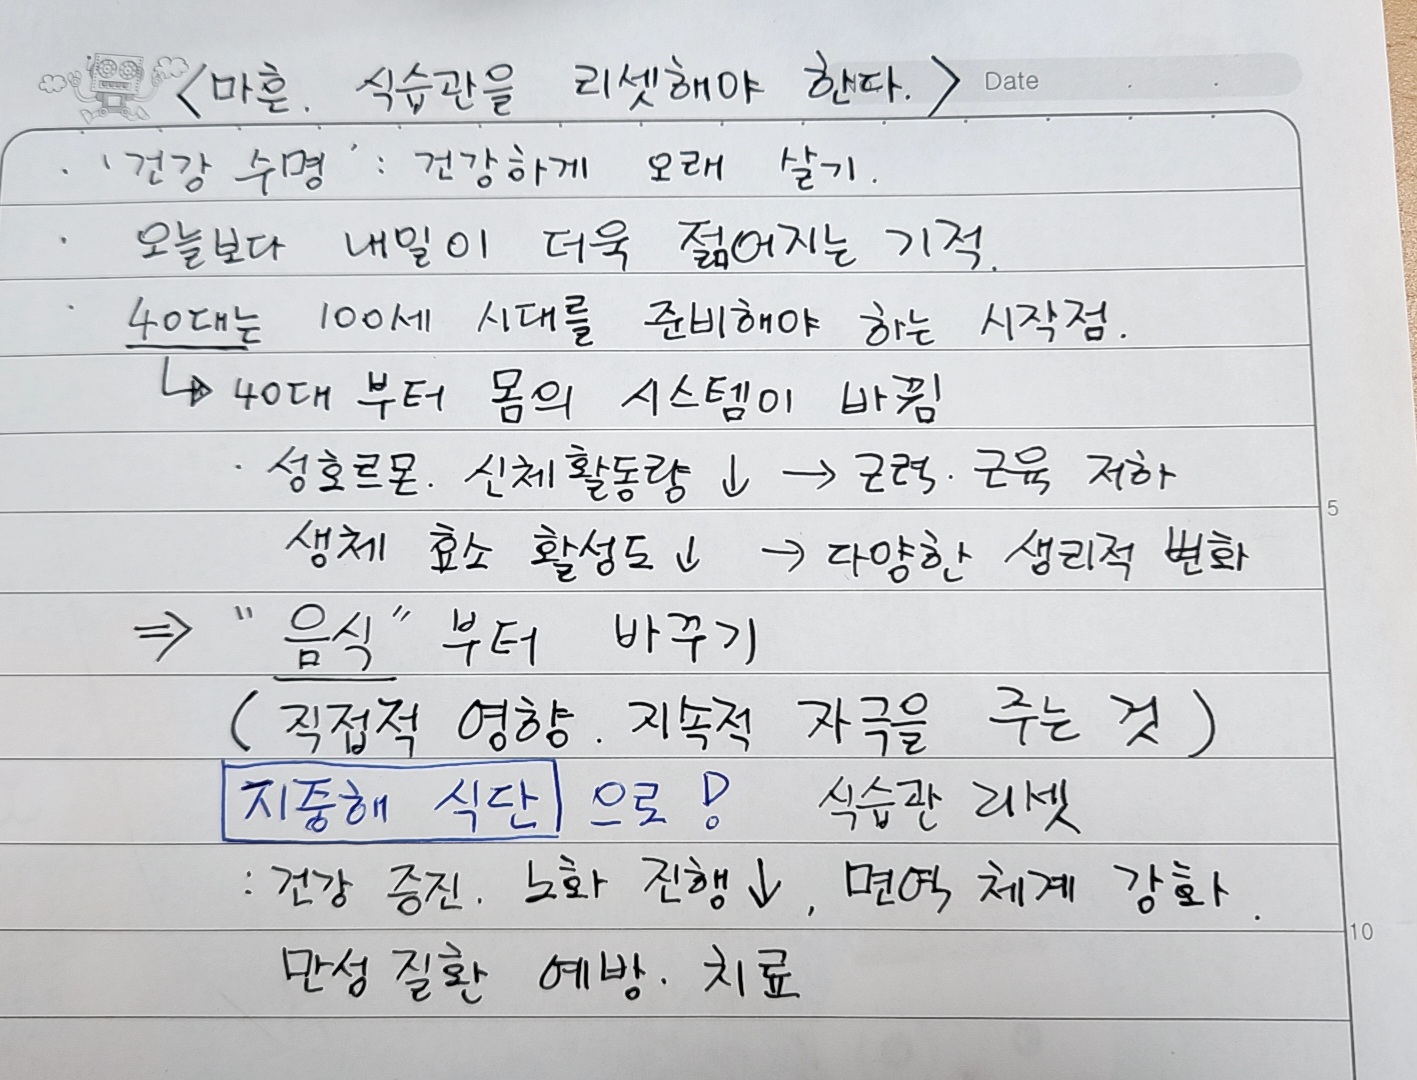 <마흔. 식습관을 리셋해야 한다.> Date
· '건강 수명' : 건강하게 오래 살기.
· 오늘보다 내일이 더욱 젊어지는 기적.
· 40대는 100세 시대를 준비해야 하는 시작점.
↳ 40대 부터 몸의 시스템이 바뀜
· 성호르몬. 신체활동량 ↓ → 근력. 근육 저하
5
생체 효소 활성도 ↓ → 다양한 생리적 변화
⇒ "음식" 부터 바꾸기
( 직접적 영향. 지속적 자극을 주는 것 )
지중해 식단 으로! 식습관 리셋
: 건강 증진. 노화 진행↓, 면역 체계 강화.
10
만성 질환 예방. 치료